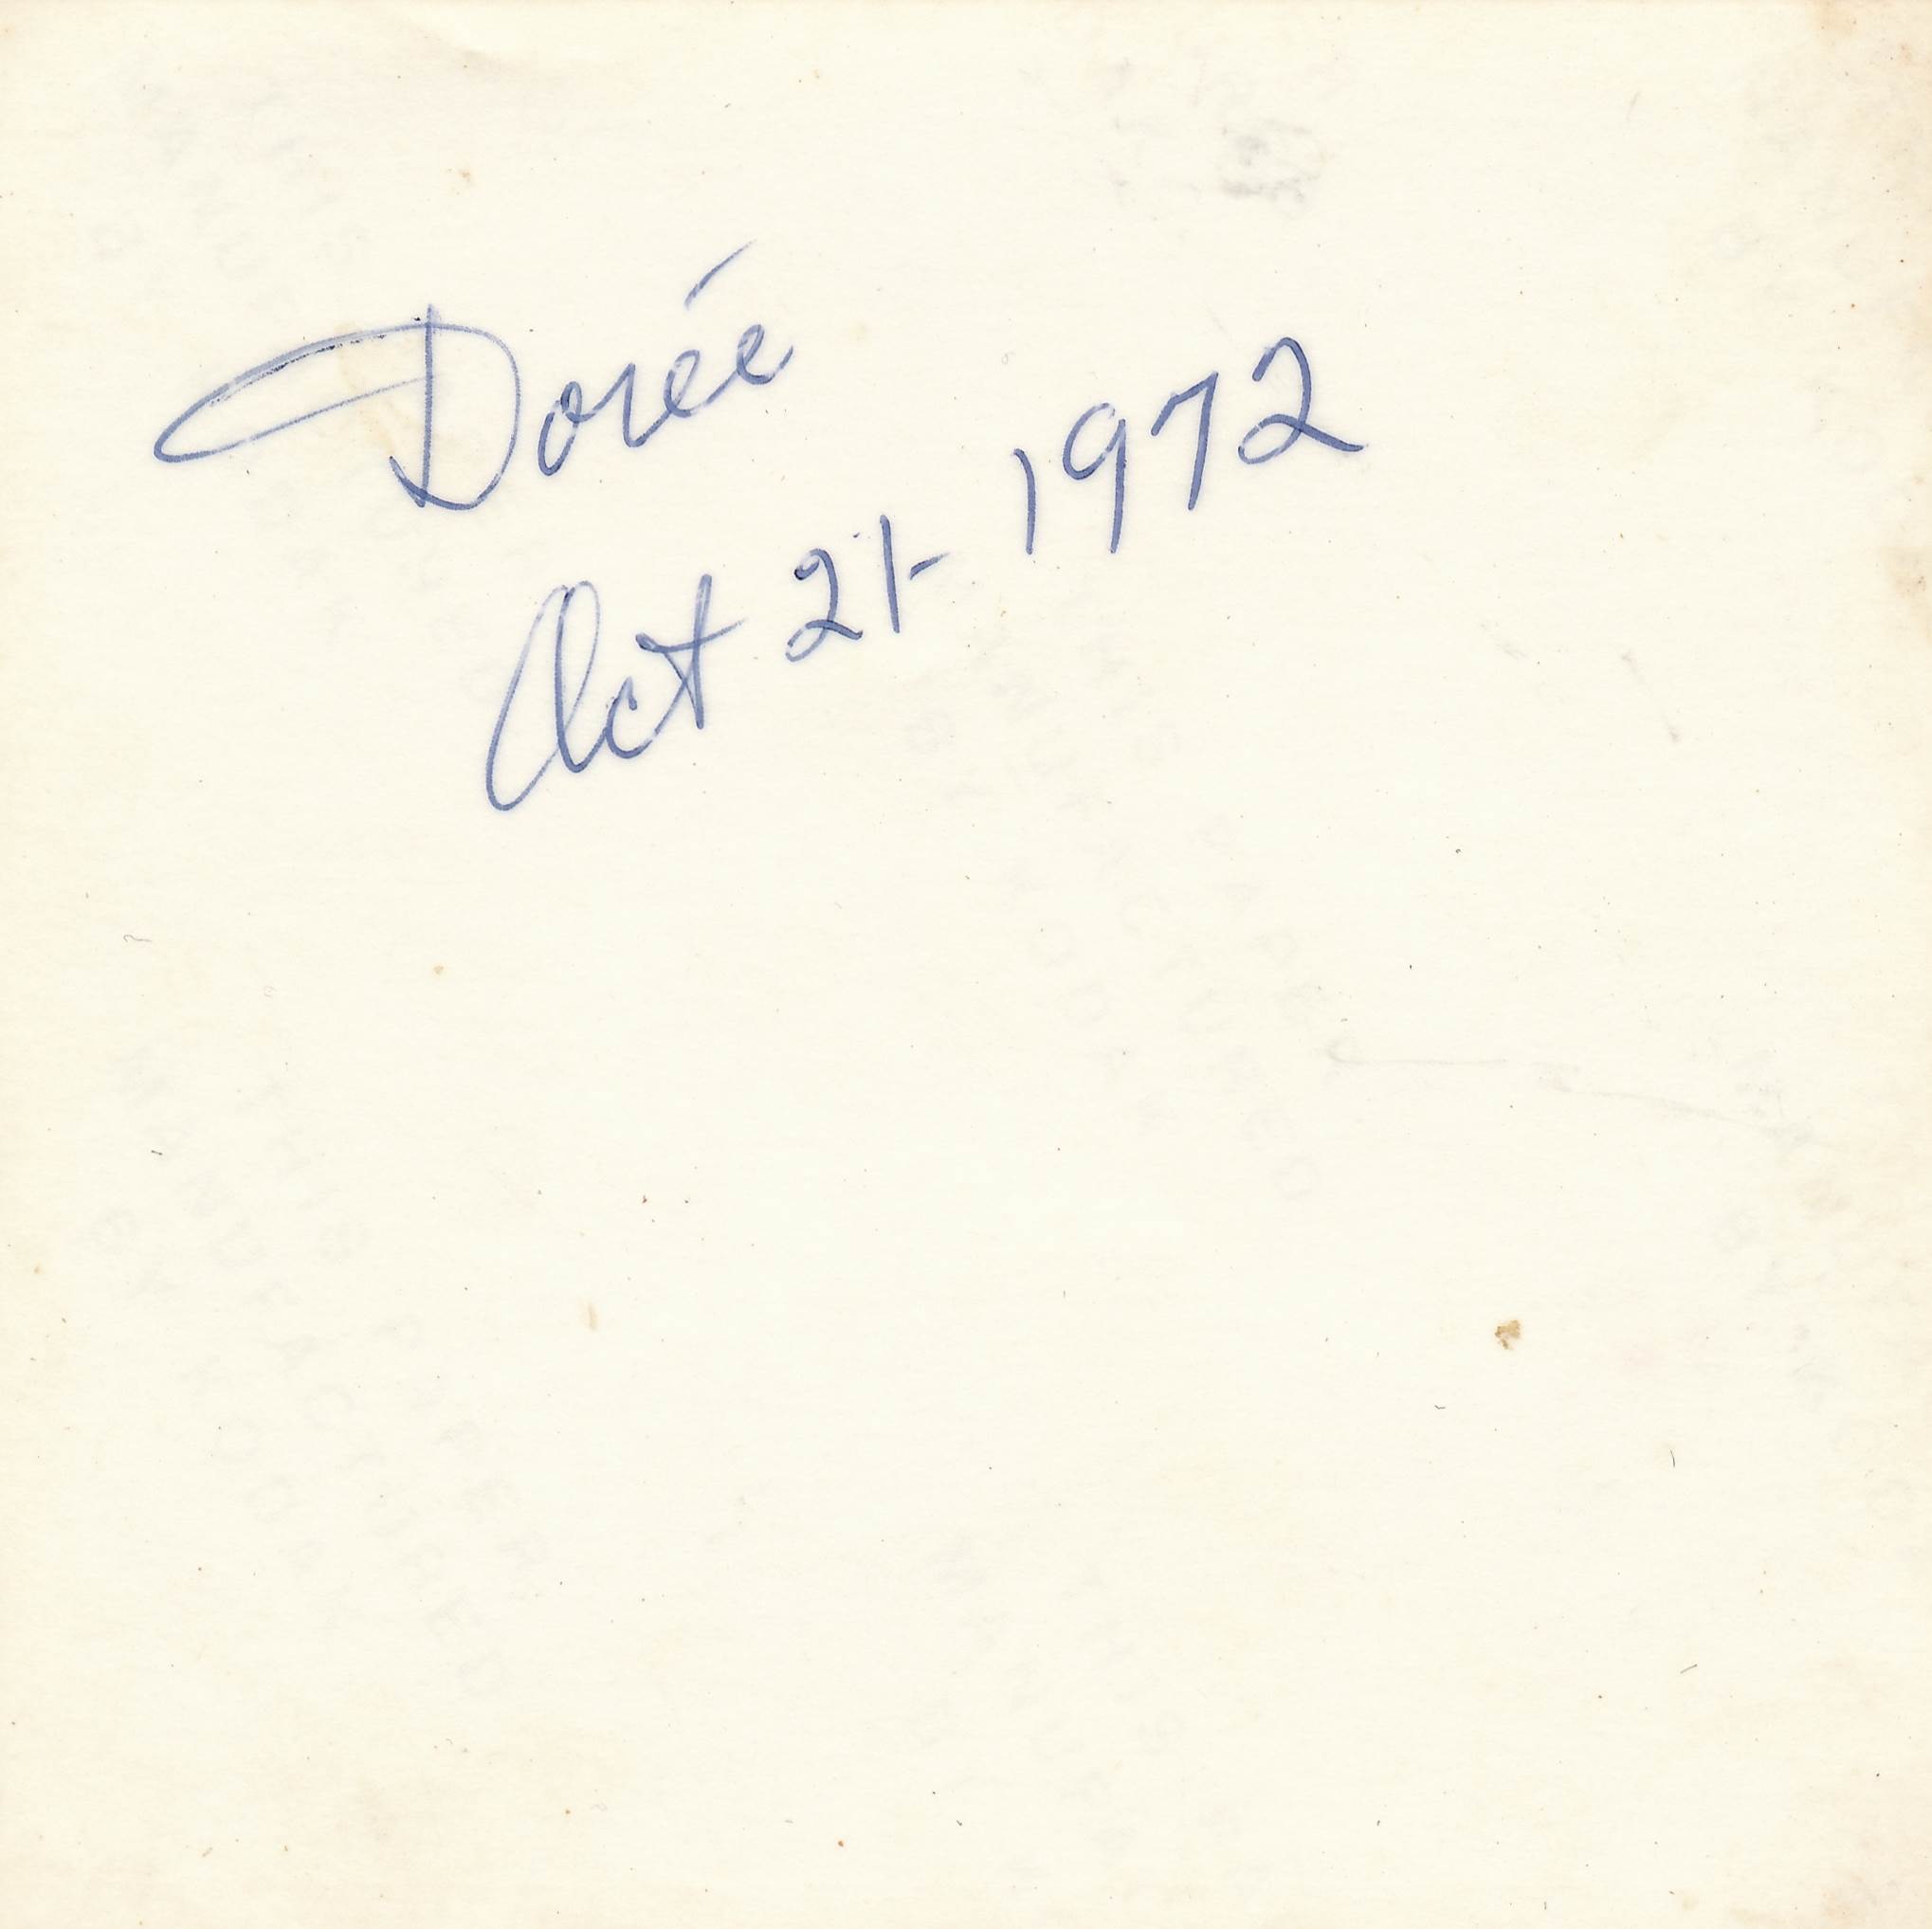 Dorée
Oct 21- 1972